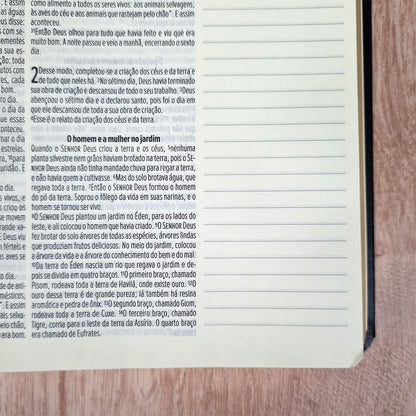 vos, e
m fru-
deus
uz dia
conteceu.
nar o dia
estrelas
o dia.
s vivos, e
grande va-
E Deus viu
n férteis e
. E assim
Salva-
io chão,
E assim
como alimento a todos os seres vivos: aos animais selvagens,
às aves do céu e aos animais que rastejam pelo chão". E assim
aconteceu.
³¹Então Deus olhou para tudo que havia feito e viu que era
muito bom. A noite passou e veio a manhã, encerrando o sexto
dia.
2 Desse modo, completou-se a criação dos céus e da terra e
de tudo que neles há. ²No sétimo dia, Deus havia terminado
sua obra de criação e descansou de todo o seu trabalho. ³Deus
abençoou o sétimo dia e o declarou santo, pois foi o dia em
que ele descansou de toda a sua obra de criação.
⁴Esse é o relato da criação dos céus e da terra.
O homem e a mulher no jardim
Quando o SENHOR Deus criou a terra e os céus, ⁵nenhuma
planta silvestre nem grãos haviam brotado na terra, pois o SE-
NHOR Deus ainda não tinha mandado chuva para regar a terra,
e não havia quem a cultivasse. ⁶Mas do solo brotava água, que
regava toda a terra. ⁷Então o SENHOR Deus formou o homem
do pó da terra. Soprou o fôlego da vida em suas narinas, e o
homem se tornou ser vivo.
⁸O SENHOR Deus plantou um jardim no Éden, para os lados do
leste, e ali colocou o homem que havia criado. ⁹O SENHOR Deus
fez brotar do solo árvores de todas as espécies, árvores lindas
que produziam frutos deliciosos. No meio do jardim, colocou
a árvore da vida e a árvore do conhecimento do bem e do mal.
¹⁰Da terra do Éden nascia um rio que regava o jardim e de-
pois se dividia em quatro braços. ¹¹O primeiro braço, chamado
Pisom, rodeava toda a terra de Havilá, onde existe ouro. ¹²O
ouro dessa terra é de grande pureza; lá também há resina
aromática e pedra de ônix. ¹³O segundo braço, chamado Giom,
rodeava toda a terra de Cuxe. ¹⁴O terceiro braço, chamado
Tigre, corria para o leste da terra da Assíria. O quarto braço
era chamado de Eufrates.